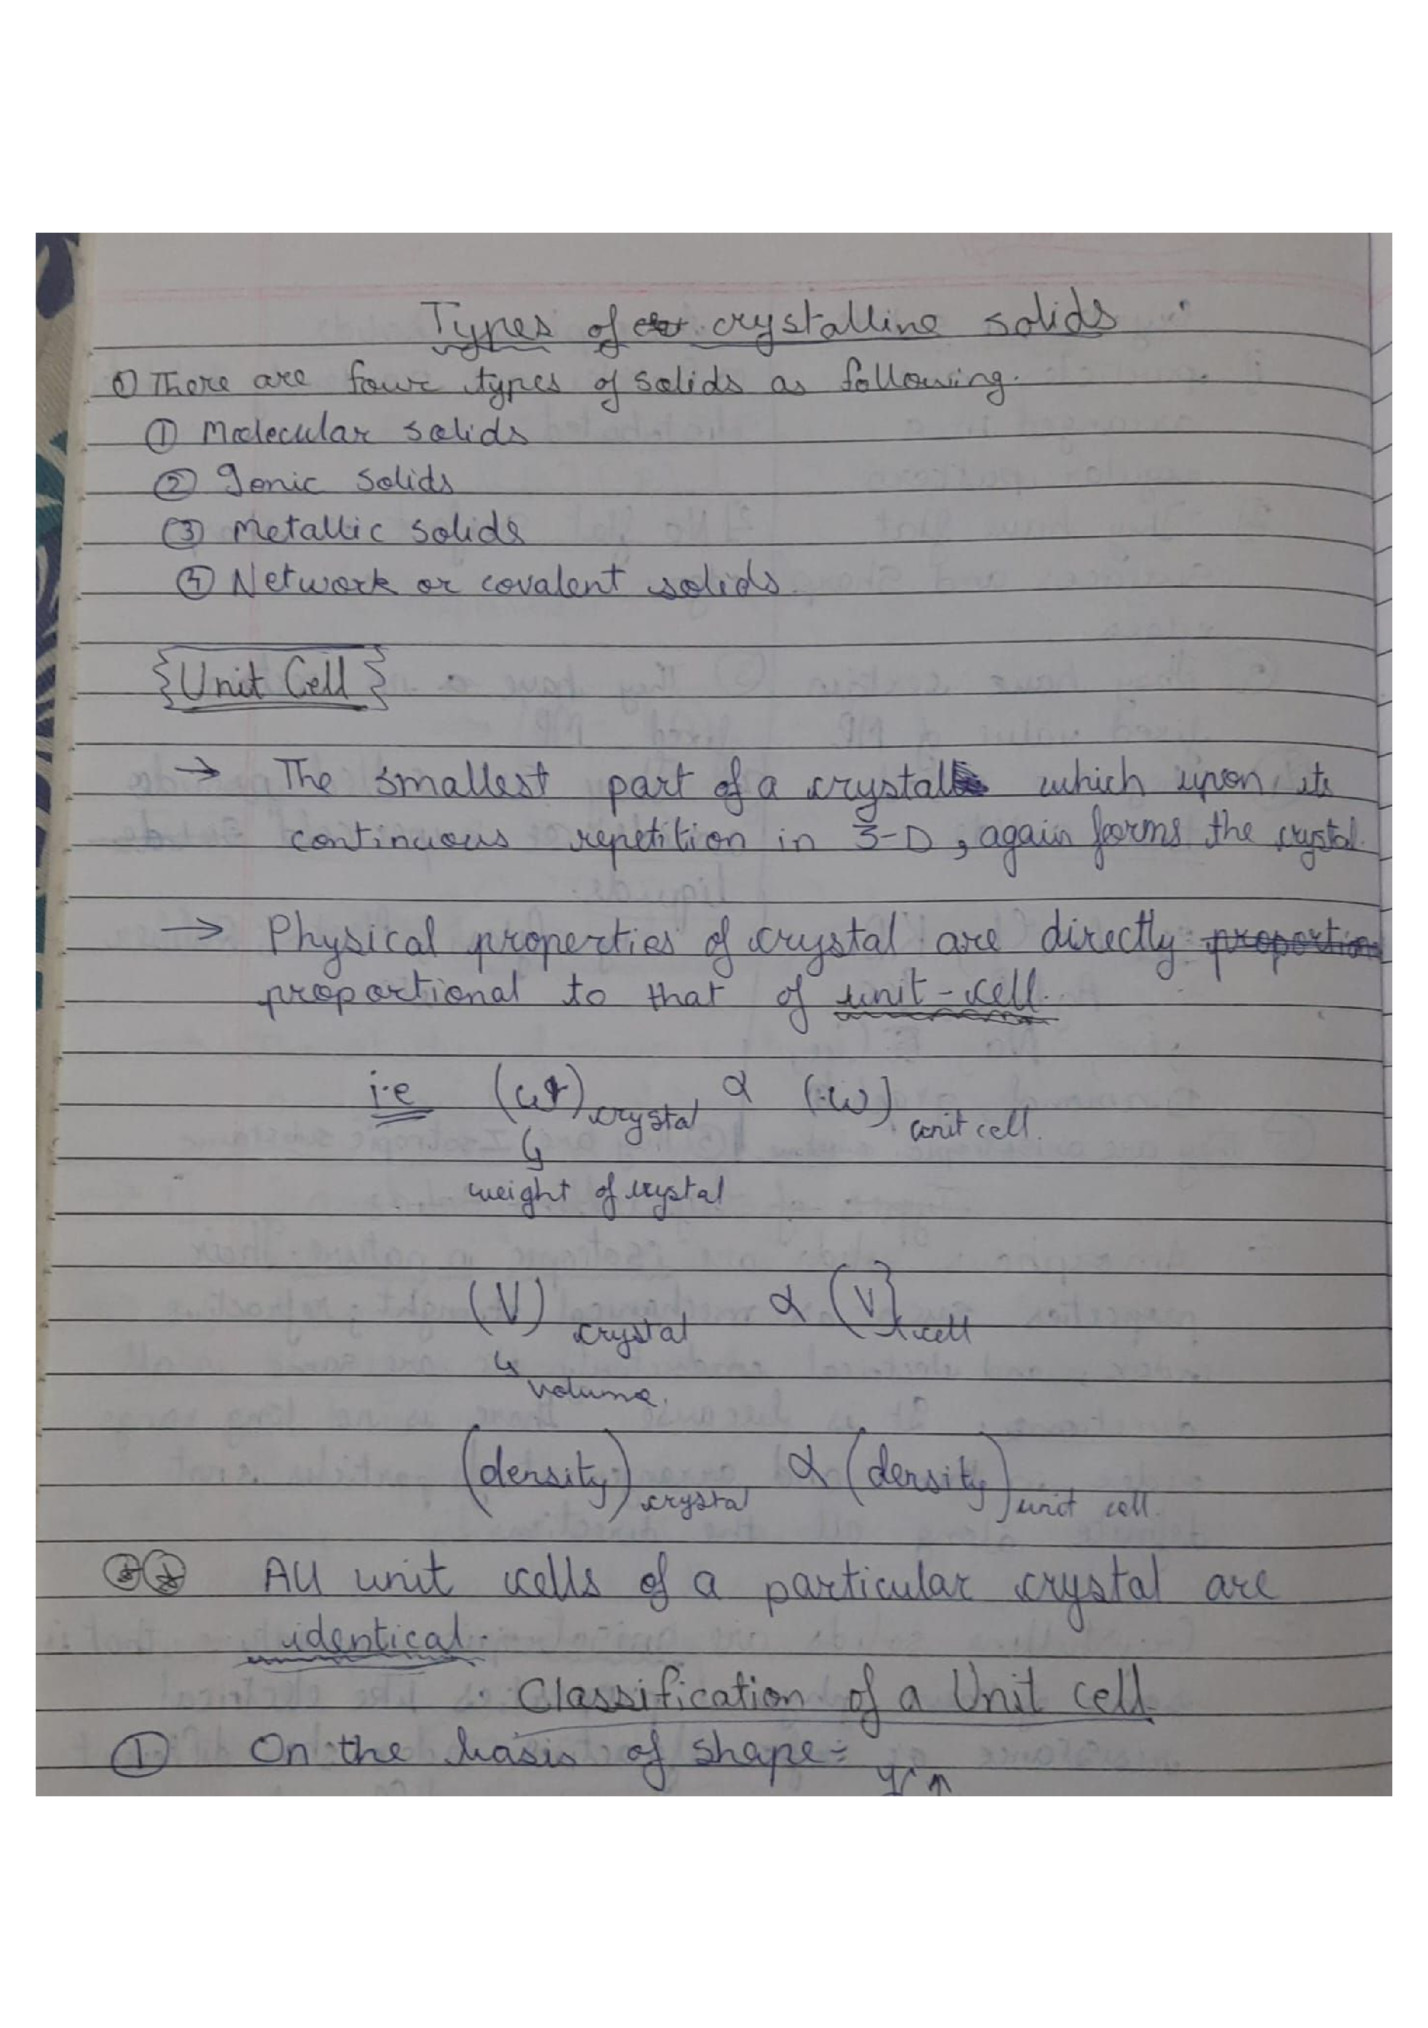 Types of crystalline solids
① There are four types of solids as following.
① Molecular solids
② Ionic solids
③ Metallic solids
④ Network or covalent solids.
{Unit Cell}
→ The smallest part of a crystal which upon its
continuous repetition in 3-D, again forms the crystal.
→ Physical properties of crystal are directly proportion
proportional to that of unit-cell.
i.e (w) crystal ∝ (w) unit cell.
↳
weight of crystal
(V) crystal ∝ (V) cell
↳ volume.
(density) crystal ∝ (density) unit cell.
All unit cells of a particular crystal are
identical.
Classification of a Unit cell
① On the basis of shape: